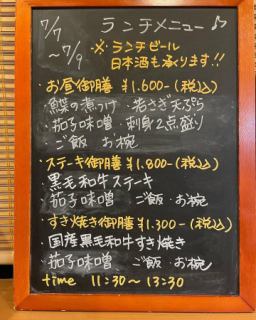 7/7 ランチメニュー♪
～7/9 ※ランチビール
日本酒も承ります!!
・お昼御膳 ¥1.600-(税込)
・鰈の煮つけ ・老さぎ天ぷら
・茄子味噌 ・刺身2点盛り
・ご飯 お椀
・ステーキ御膳 ¥1.800-(税込)
・黒毛和牛ステーキ
・茄子味噌 ご飯・お椀
・すき焼き御膳 ¥1.300-(税込)
・国産黒毛和牛すき焼き
・茄子味噌 ご飯・お椀
time 11:30～13:30